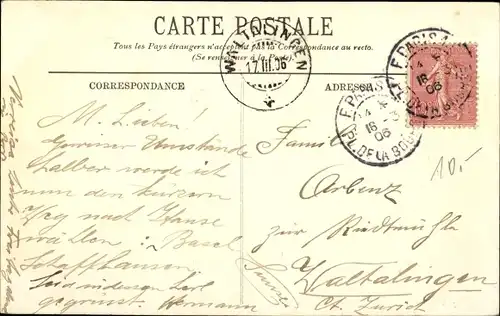 CARTE POSTALE
Tous les Pays étrangers n'acceptent pas la Correspondance au recto.
(Se renseigner à la Poste).
WALTALINGEN
17.III.06
PARIS
16
06
PL. DE LA BOURSE
PARIS
16
06
DE LA BOURSE
CORRESPONDANCE
ADRESSE
M. Lieben!
Gewisser Umstände
halber werde ich
nun den kürzern
Weg nach Hause
wählen: Basel
Schaffhausen
Seid indessen herzl
gegrüsst. Hermann
Familie
Arbenz
zur Riedtmühle
Waltalingen
Ct. Zürich
Suisse
10.-